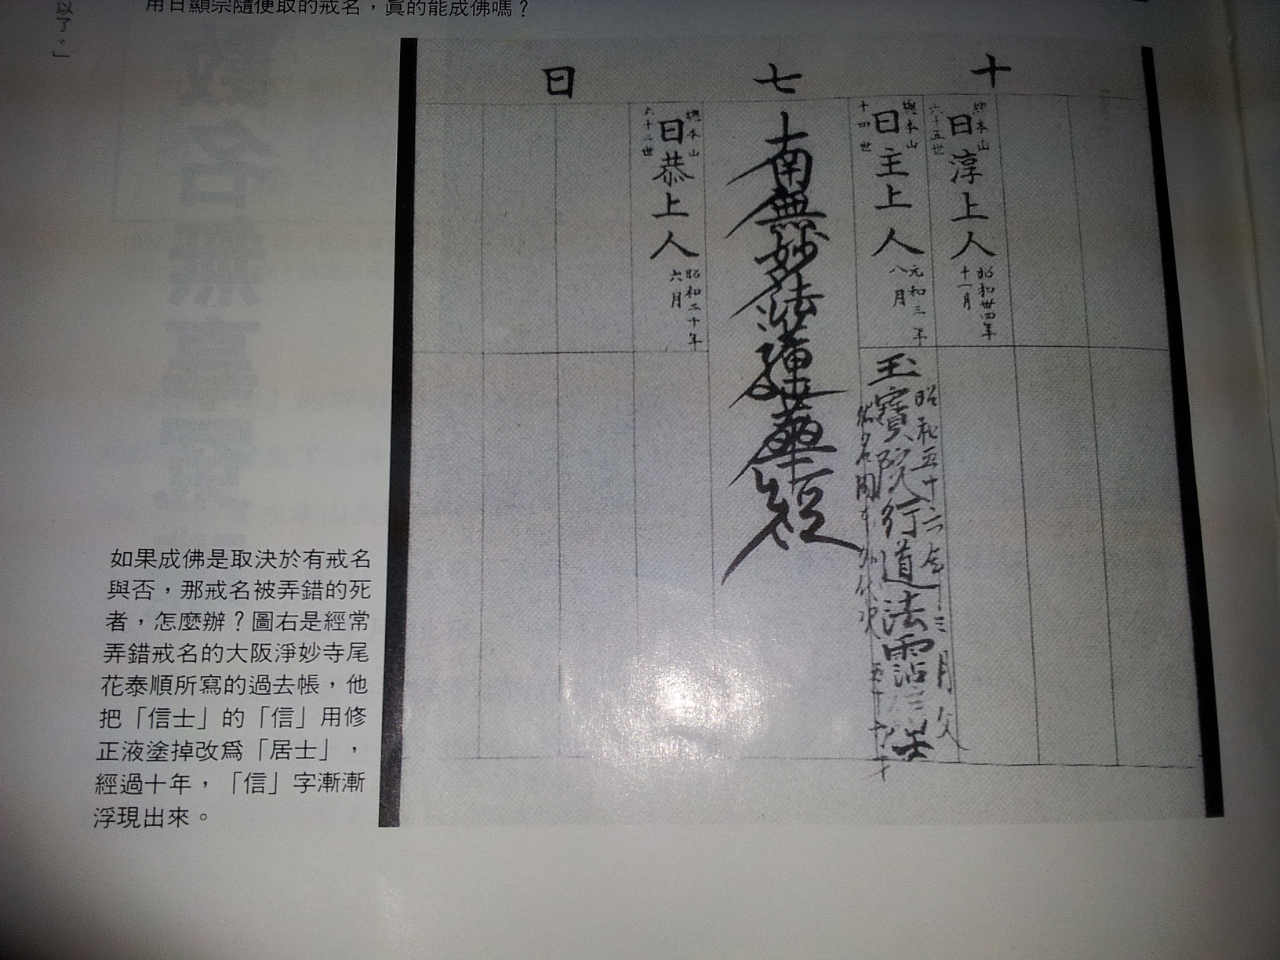 用日顯宗隨便取的戒名，真的能成佛嗎？
以了。」
十
七
日
總本山
六十五世
日淳上人
昭和卅四年
十一月
總本山
十四世
日主上人
元和三年
八月
玉寶院行道法霑居士
昭和五十六年十三月父
南無妙法蓮華經
總本山
六十二世
日恭上人
昭和二十年
六月
如果成佛是取決於有戒名
與否，那戒名被弄錯的死
者，怎麼辦？圖右是經常
弄錯戒名的大阪淨妙寺尾
花泰順所寫的過去帳，他
把「信士」的「信」用修
正液塗掉改爲「居士」，
經過十年，「信」字漸漸
浮現出來。